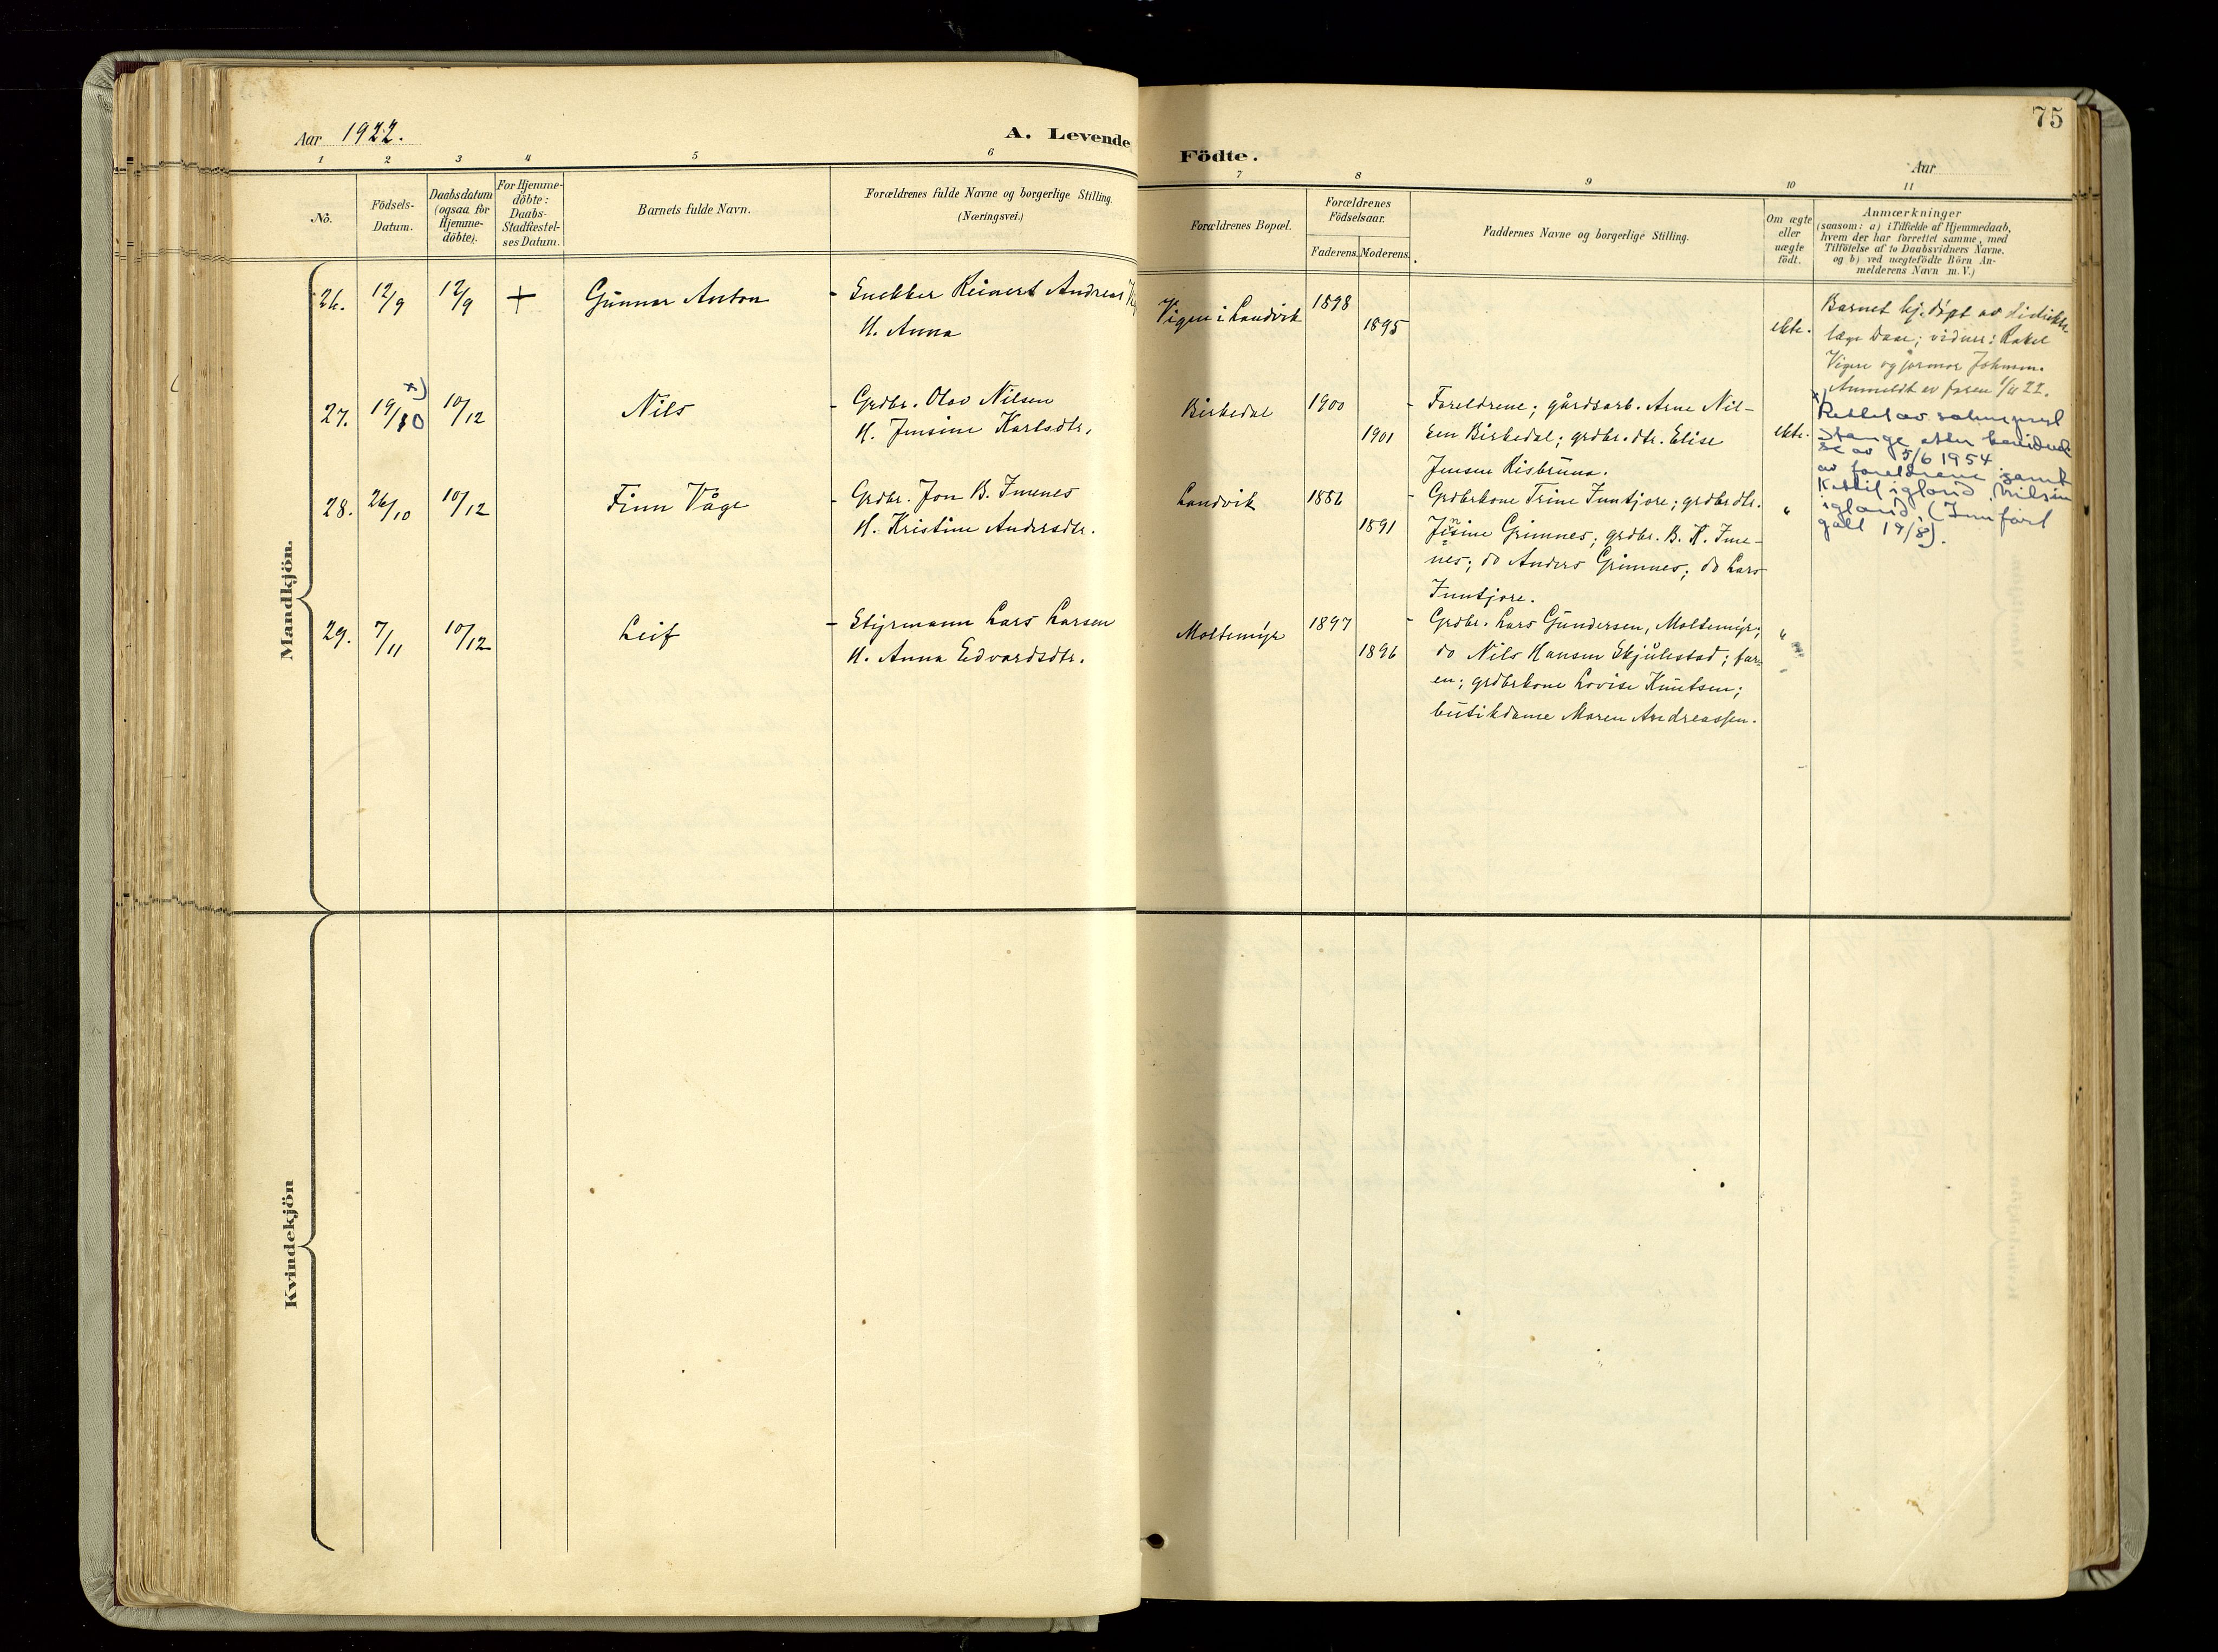 75
Aar 1922.
A. Levende Födte.
Aar
1 2 3 4 5 6 7 8 9 10 11
No.
Födsels-
Datum.
Daabsdatum
(ogsaa for
Hjemme-
döbte).
For Hjemme-
döbte:
Daabs-
Stadfæstel-
ses Datum.
Barnets fulde Navn.
Forældrenes fulde Navne og borgerlige Stilling.
(Næringsvei.)
Forældrenes Bopæl.
Forældrenes
Födselsaar.
Faderens. Moderens.
Faddernes Navne og borgerlige Stilling.
Om ægte
eller
uægte
födt.
Anmærkninger
(saasom: a) i Tilfælde af Hjemmedaab,
hvem der har forrettet samme, med
Tilföielse af to Daabsvidners Navne.
og b) ved uægtefödte Börn An-
melderens Navn m. V.)
Mandkjön.
26. 12/9 12/9 + Gunnar Anton
Snekker Reinert Andreas
H. Anna
Vigen i Landvik
1898
1895
ekte.
Barnet hj.døpt av
læge Daae; vidner: Rakel
Vigen og jormor Johnsen.
Anmeldt av faren 22.
27. 19/10 x) 10/12 Nils
Grdbr. Olav Nilsen
H. Jensine Karlsdtr.
Birkedal
1900
1901
Foreldrene; gårdsarb. Arne Nil-
sen Birkedal; grdbr.dtr. Elise
Jensen Risbruna.
ekte.
x) Rettet av
Stange etter
se av 5/6 1954
av foreldrene samt
Kittil Igland, Nilsine
Igland. (Innført
galt 19/8).
28. 26/10 10/12 Finn Våge
Grdbr. Jon B. Imenes
H. Kristine Andersdtr.
Landvik
1886
1891
Grdbrkone Trine Inntjore; grdbrdtr.
Jensine Grimnes; grdbr. B. K. Ime-
nes; do Anders Grimnes; do Lars
Inntjore.
"
29. 7/11 10/12 Leif
Styrmann Lars Larsen
H. Anna Edvardsdtr.
Moltemyr
1897
1896
Grdbr. Lars Gundersen, Moltemyr;
do Nils Hansen Skjulestad; far-
en; grdbrkone Lovise Knutsen;
butikdame Maren Andreassen.
"
Kvindekjön